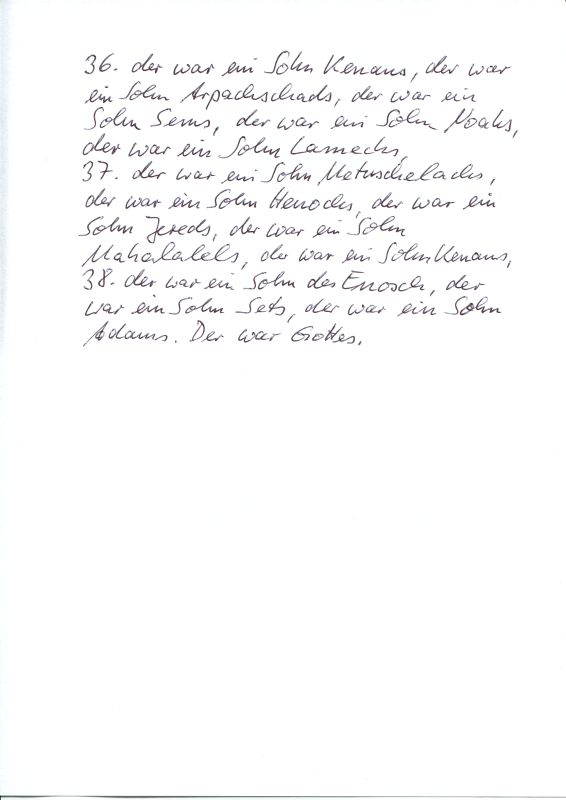 36. der war ein Sohn Kenans, der war
ein Sohn Arpachschads, der war ein
Sohn Sems, der war ein Sohn Noahs,
der war ein Sohn Lamechs,
37. der war ein Sohn Metuschelachs,
der war ein Sohn Henochs, der war ein
Sohn Jereds, der war ein Sohn
Mahalalels, der war ein Sohn Kenans,
38. der war ein Sohn des Enosch, der
war ein Sohn Sets, der war ein Sohn
Adams. Der war Gottes.